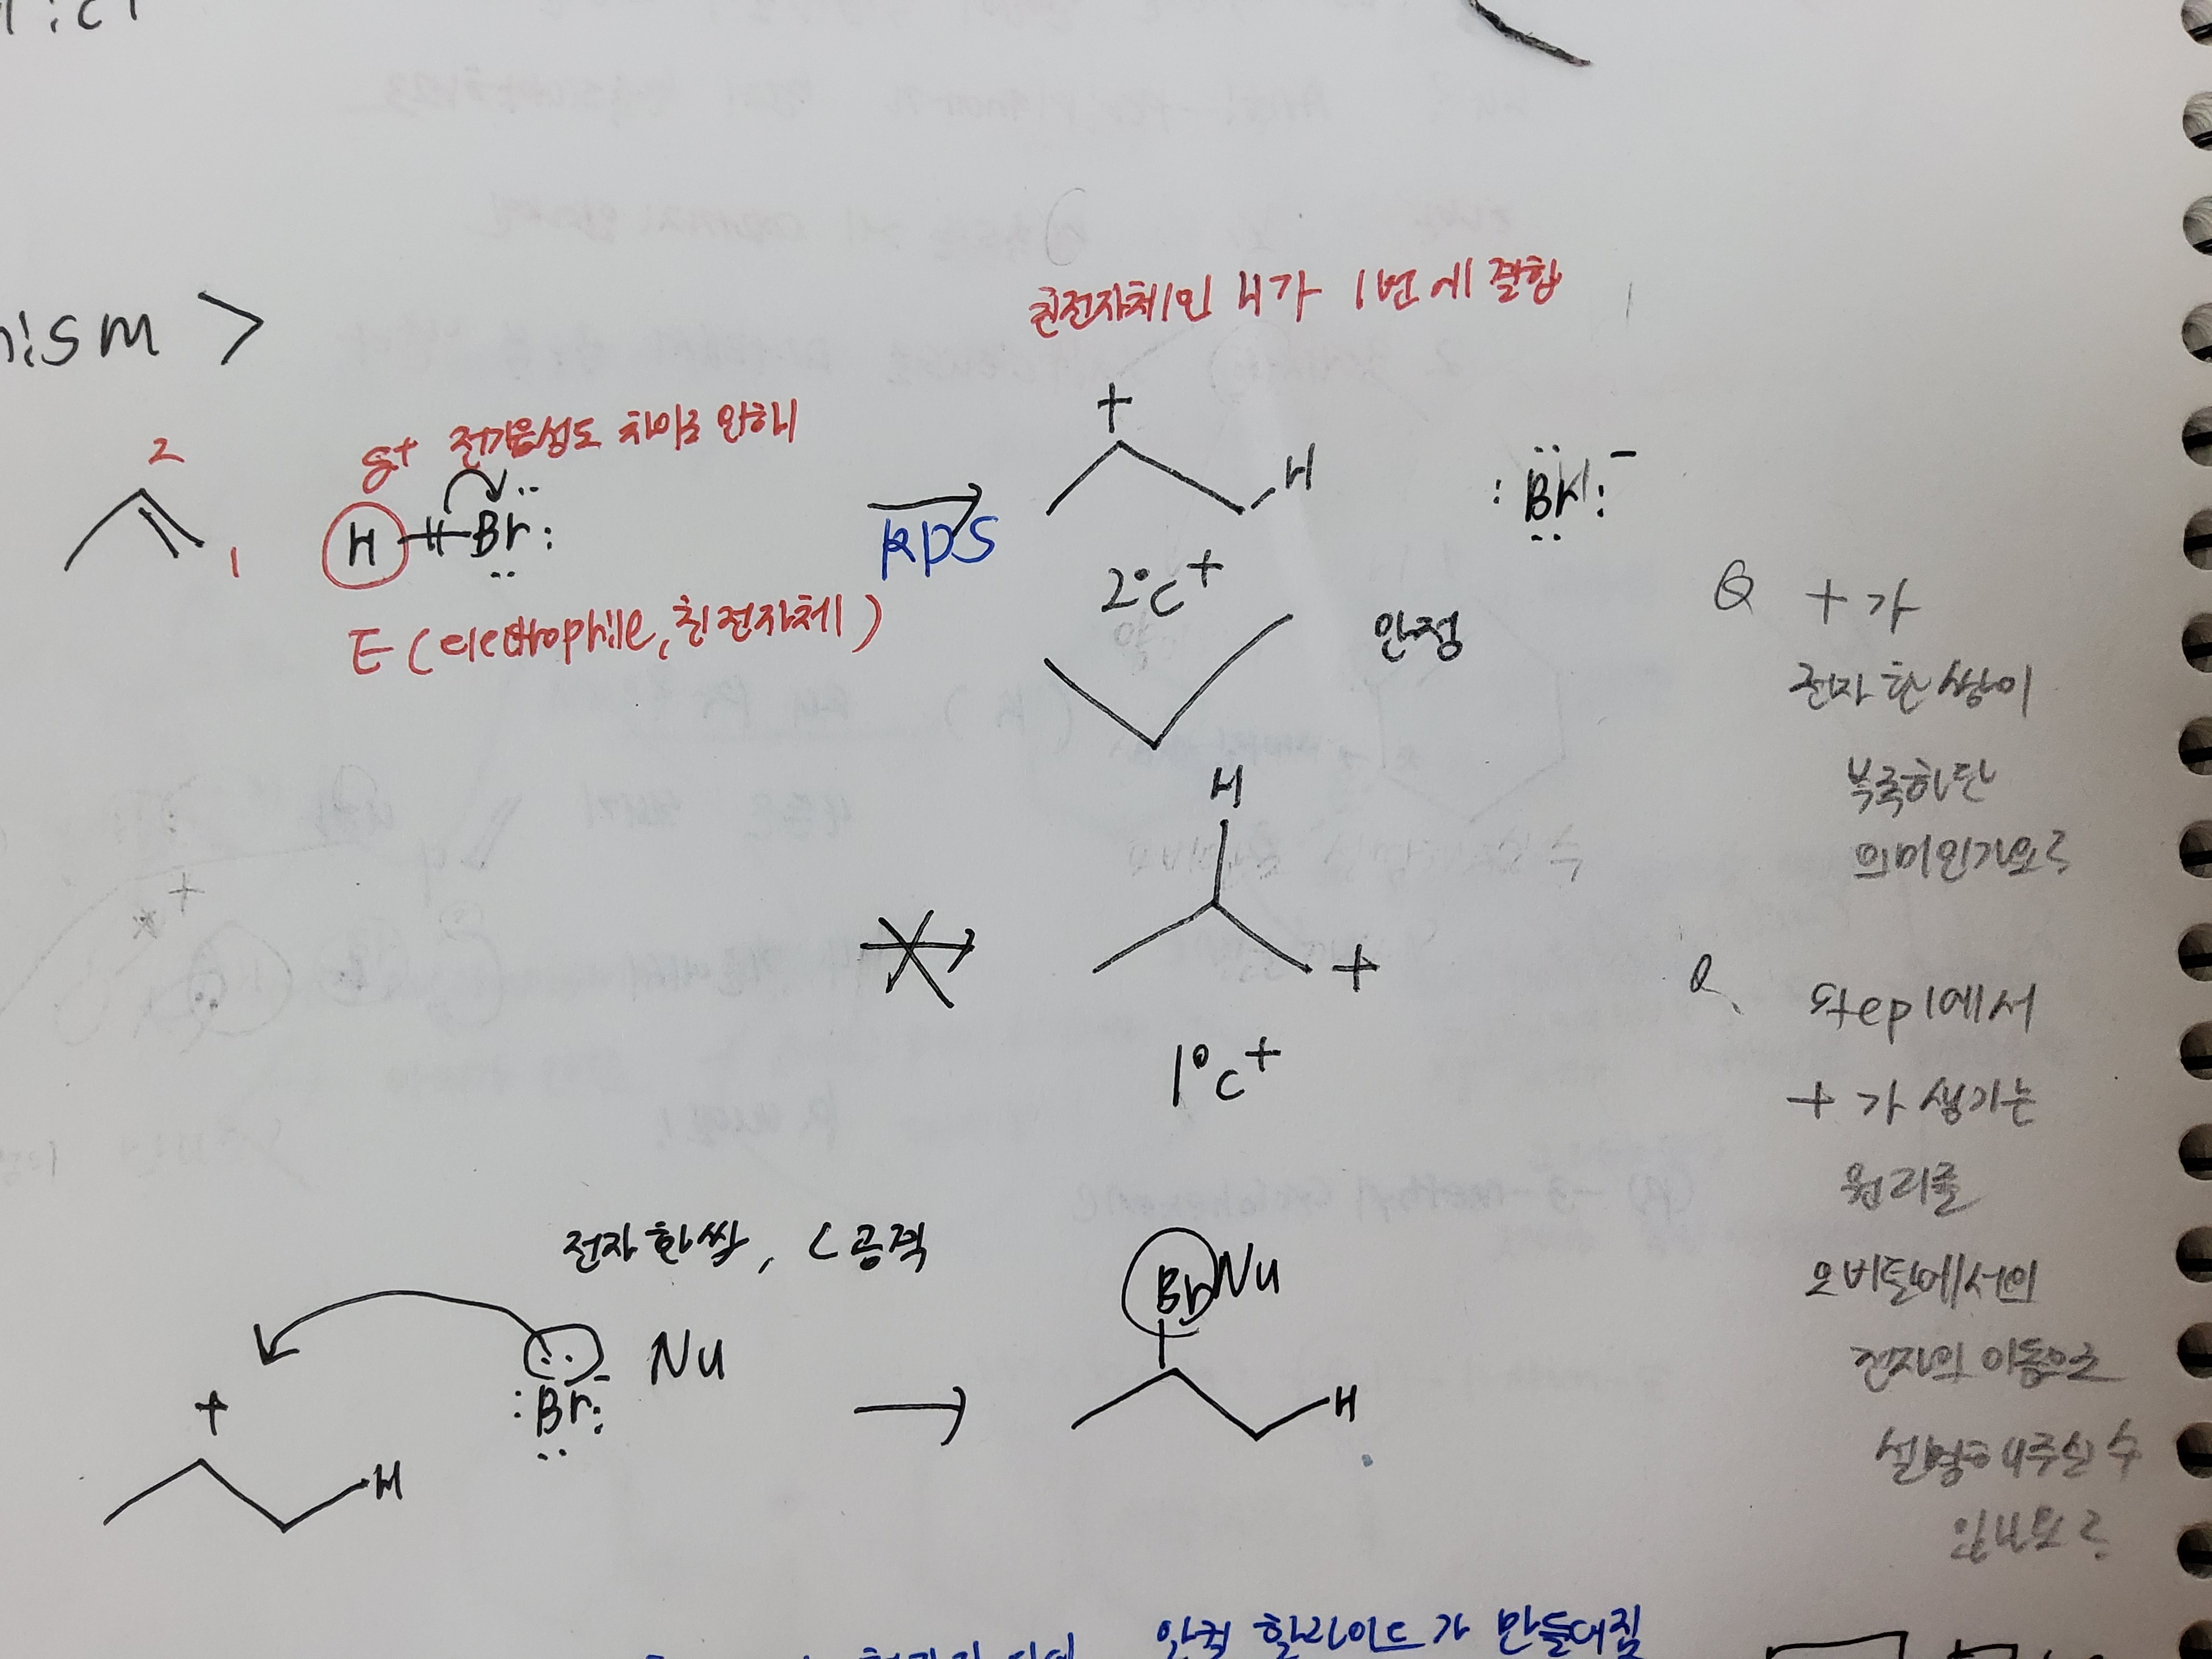 nism >
친전자체인 H가 1번에 결합
2
δ+ 전기음성도 차이로 인해
+
H
H Br:
1
RDS
:Br:⁻
2°C⁺
안정
E (electrophile, 친전자체)
Q +가
전자 한쌍이
부족하단
의미인가요?
H
+
1°C⁺
Q. Step 1에서
+가 생기는
원리를
오비탈에서의
전자의 이동으로
설명해주실 수
있나요?
전자 한쌍, C 공격
Br Nu
:Br:⁻ Nu
+
H
H
알킬 할라이드가 만들어짐